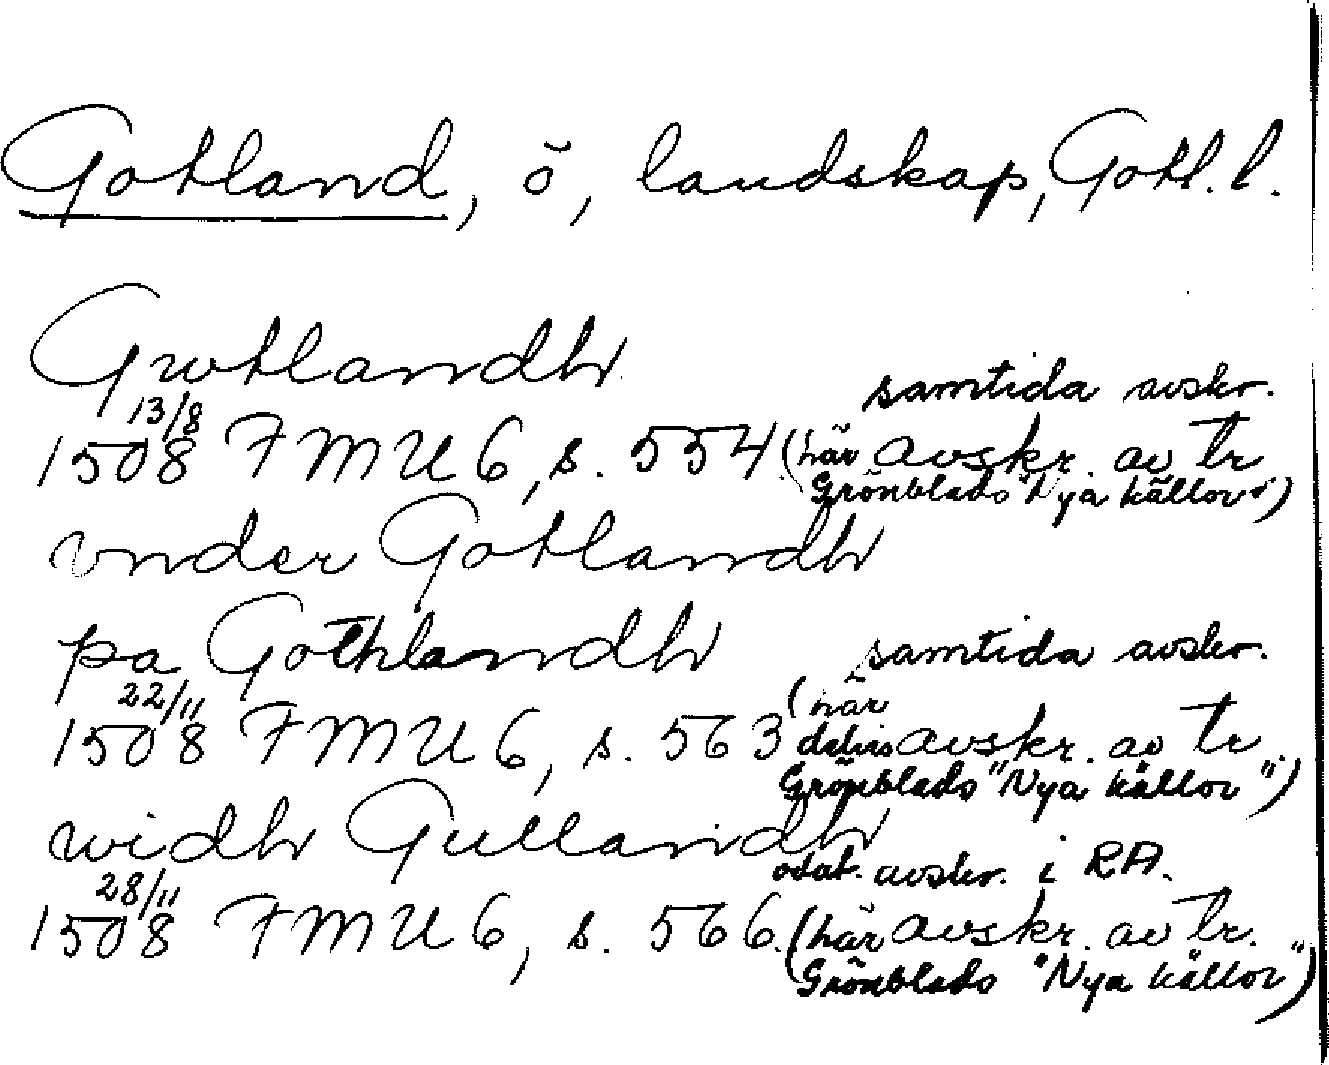 Gotland, ö, landskap, Gotl. l.
Gwtlandh
samtida avskr.
13/8
1508 FMU 6, s. 554. (här avskr. av tr
Grönblads "Nya källor")
vnder Gotlandh
pa Gothlandh samtida avskr.
22/11 (här
1508 FMU 6, s. 563 delvis avskr. av tr.
Grönblads "Nya källor".)
widh Gullandh
odat. avskr. i RA.
28/11
1508 FMU 6, s. 566. (här avskr. av tr.
Grönblads "Nya källor")